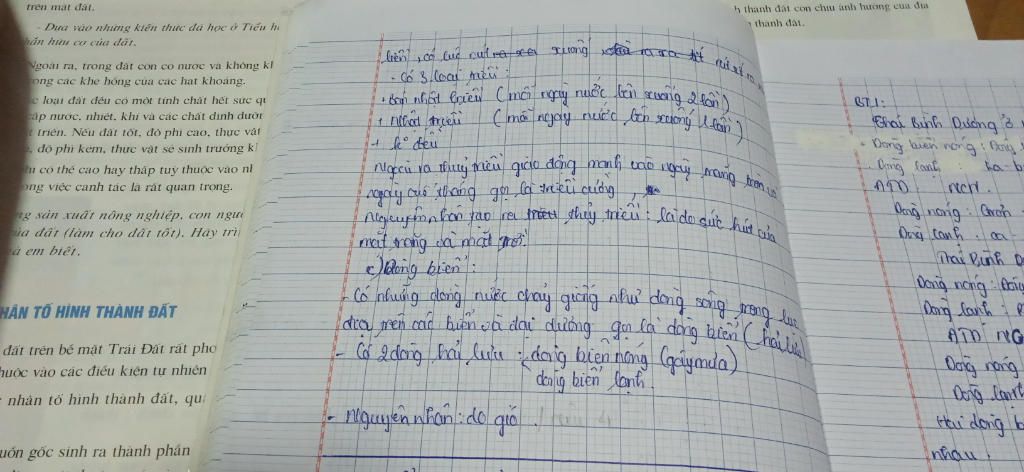 trên mặt đất.
- Dựa vào những kiến thức đã học ở Tiểu h
phần hữu cơ của đất.
Ngoài ra, trong đất còn có nước và không kh
trong các khe hổng của các hạt khoáng.
loại đất đều có một tính chất hết sức qu
cấp nước, nhiệt, khí và các chất dinh dưỡn
t triển. Nếu đất tốt, độ phì cao, thực vật
, độ phì kém, thực vật sẽ sinh trưởng k
có thể cao hay thấp tuỳ thuộc vào
ong việc canh tác là rất quan trọng.
ng sản xuất nông nghiệp, con ngư
của đất (làm cho đất tốt). Hãy trì
em biết.
HÂN TỐ HÌNH THÀNH ĐẤT
đất trên bề mặt Trái Đất rất pho
thuộc vào các điều kiện tự nhiên
nhân tố hình thành đất, qu
uồn gốc sinh ra thành phần
h thành đất còn chịu ảnh hưởng của địa
thành đất.
biển, có lúc xuống
- Có 3 loại triều:
+ bán nhật triều (mỗi ngày nước lên xuống 2 lần)
+ nhật triều (mỗi ngày nước lên xuống 1 lần)
+ k đều
Ngoài ra thuỷ triều giao động mạnh vào ngày trăng tròn
ngày cuối tháng gọi là triều cường,
nguyên nhân tạo ra thủy triều: là do sức hút của
mặt trăng và mặt trời.
c) Dòng biển:
- Có những dòng nước chảy giống như dòng sông trong lục
địa trên các biển và đại dương gọi là dòng biển (hải lưu)
- Có 2 dòng hải lưu: dòng biển nóng (gây mưa)
dòng biển lạnh.
- nguyên nhân: do gió.
BT1:
Thái Bình Dương ở
- Dòng biển nóng:
Dòng lạnh:
ATD NCN.
Dòng nóng:
Dòng lạnh:
Thái Bình D
Dòng nóng:
Dòng lạnh:
ATD
Dòng nóng
Dòng lạnh
Hai dòng b
nhau.